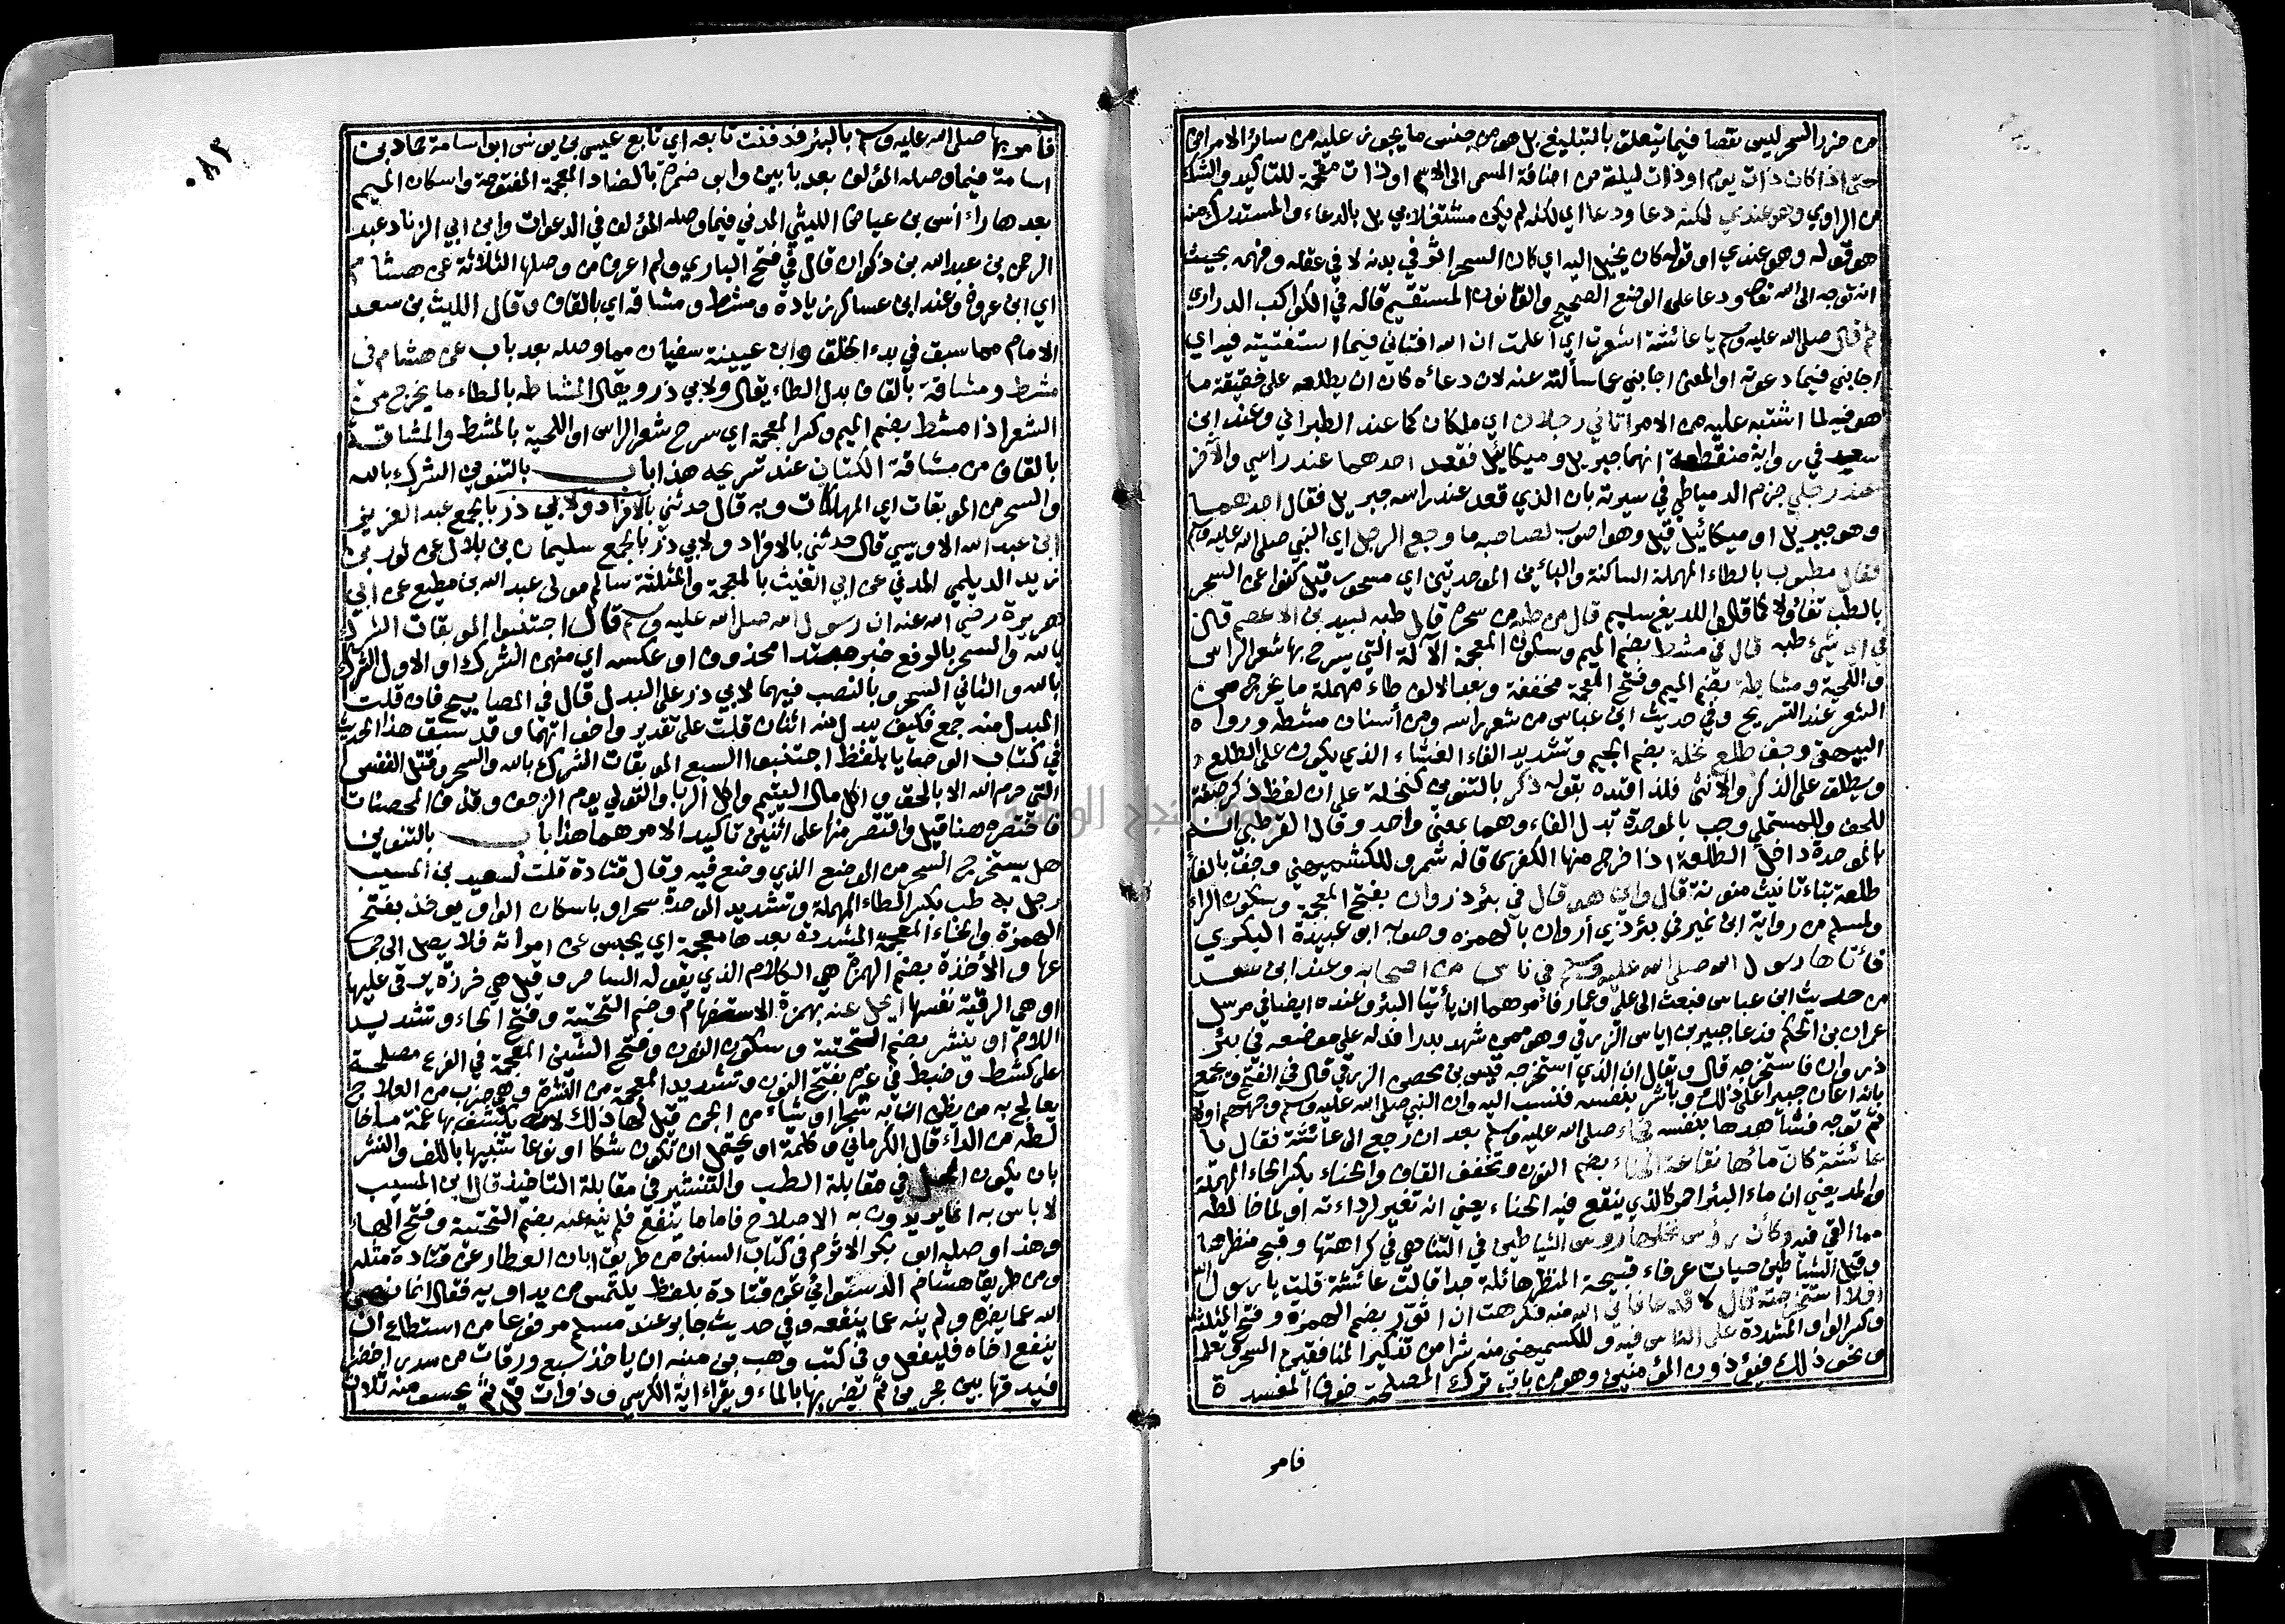 من ضرر السحر ليس نقصا فيما يتعلق بالتبليغ بل هو من جنس ما يجوز عليه من سائر الامراض
حتى اذا كان ذات يوم او ذات ليلة من اضافة المسمى الى الاسم او ذات مقحمة للتاكيد والشك
من الراوي وهو عندي لكنه دعا ودعا اي لكنه لم يكن مشتغلا بي بل بالدعاء والمستدرك منه
هو قوله وهو عندي او قوله كان يخيل اليه اي كان السحر اثر في بدنه لا في عقله وفهمه بحيث
انه توجه الى الله تعا ودعا على الوضع الصحيح والقانون المستقيم قاله في الكواكب الدراري
ثم قال صلى الله عليه وسلم يا عائشة اشعرت اي اعلمت ان الله افتاني فيما استفتيته فيه اي
اجابني فيما دعوته او المعنى اجابني عما سألته عنه لان دعائه كان ان يطلعه على حقيقة ما
هو فيه لما اشتبه عليه من الامر اتاني رجلان اي ملكان كما عند الطبراني وعند ابن
سعيد في رواية منقطعة انهما جبريل وميكائيل فقعد احدهما عند راسي والآخر
عند رجلي جزم الدمياطي في سيرته بان الذي قعد عند راسه جبريل فقال احدهما
وهو جبريل او ميكائيل قيل وهو اصوب لصاحبه ما وجع الرجل اي النبي صلى الله عليه وسلم
فقال مطبوب بالطاء المهملة الساكنة والبائين الموحدتين اي مسحور قيل كنوا عن السحر
بالطب تفاؤلا كما قالوا اللديغ سليم قال من طبه من سحره قال طبه لبيد بن الاعصم قال
في اي شيء طبه قال في مشط بضم الميم وسكون المعجمة الآلة التي يسرح بها شعر الراس
واللحية ومشاطة بضم الميم وفتح المعجمة مخففة وبعد الالف طاء مهملة ما يخرج من
الشعر عند التسريح وفي حديث ابن عباس من شعر راسه ومن أسنان مشطه ورواه
البيهقي وجف طلع نخلة بضم الجيم وتشديد الفاء الغشاء الذي يكون على الطلع
ويطلق على الذكر والانثى فلذا قيده بقوله ذكر بالتنوين كنخلة على ان لفظ ذكر صفة
للجف وللمستملي وجب بالموحدة بدل الفاء وهما بمعنى واحد وقال القرطبي
بالموحدة داخل الطلعة اذا خرج منها الكفرى قاله شمر وللكشميهني وجف بالفاء
طلعة بتاء تانيث منونة قال واين هو قال في بئر ذروان بفتح المعجمة وسكون الراء
ولمسلم من رواية ابن نمير في بئر ذي أروان بالهمزه وصوبه ابو عبيدة البكري
فأتاها رسول الله صلى الله عليه وسلم في ناس من اصحابه وعند ابن سعد
من حديث ابن عباس فبعث الى علي وعمار فأمرهما ان يأتيا البئر وعنده ايضا في مرسل
عمران بن الحكم فدعا جبير بن اياس الزرقي وهو ممن شهد بدرا فدله على موضعه في بئر
ذروان فاستخرجه قال ويقال ان الذي استخرجه قيس بن محصن الزرقي قال في الفتح ويجمع
بانه اعان جبيرا على ذلك وباشر بنفسه فنسب اليه وان النبي صلى الله عليه وسلم وجههم اولا
ثم توجه فشاهدها بنفسه فجاء صلى الله عليه وسلم بعد ان رجع الى عائشة فقال يا
عائشة كان مائها نقاعة الحناء بضم النون وتخفف القاف والحناء بكسر الحاء المهملة
والمد يعني ان ماء البئر احمر كالذي ينقع فيه الحناء يعني انه تغير لرداءته او لما خالطه
مما القي فيه وكأن رؤس نخلها رؤس الشياطين في التناهي في كراهتها وقبح منظرها
وقيل الشياطين حيات عرفاء قبيحة المنظر هائلة جدا قالت عائشة قلت يا رسول الله
افلا استخرجته قال لا قد عافاني الله منه فكرهت ان اثور بضم الهمزة وفتح المثلثة
وكسر الواو المشددة على الناس فيه وللكشميهني منه شرا من تفكير المنافقين السحر وتعلمه
ونحو ذلك فيؤذون المؤمنين وهو من باب ترك المصلحة خوف المفسدة
فامر
٠٨٣
فأمر بها صلى الله عليه وسلم بالبئر فدفنت تابعه اي تابع عيسى بن يونس ابو اسامة حماد بن
اسامة فيما وصله المؤلف بعد بابين وابي ضمرة بالضاد المعجمة المفتوحة واسكان الميم
بعدها راء انس بن عياض الليثي المدني فيما وصله المؤلف في الدعوات وابن ابي الزناد عبد
الرحمن بن عبد الله بن ذكوان قال في فتح الباري ولم اعرف من وصلها الثلاثة عن هشام
اي ابن عروة وعند ابن عساكر زيادة ومشط ومشاقه اي بالقاف وقال الليث بن سعد
الامام مما سبق في بدء الخلق وابن عيينة سفيان مما وصله بعد باب عن هشام في
مشط ومشاقة بالقاف بدل الطاء يقال ولابي ذر ويقال المشاطه بالطاء ما يخرج من
الشعر اذا مشط بضم الميم وكسر المعجمة اي سرح شعر الراس او اللحية بالمشط والمشاقة
بالقاف من مشاقة الكتان عند تسريحه هذا باب بالتنوين الشرك بالله
والسحر من الموبقات اي المهلكات وبه قال حدثني بالافراد ولابي ذر بالجمع عبد العزيز
ابن عبد الله الاويسي قال حدثني بالافراد ولابي ذر بالجمع سليمان بن بلال عن ثور بن
زيد الديلمي المدني عن ابي الغيث بالمعجمة والمثلثة سالم مولى عبد الله بن مطيع عن ابي
هريرة رضي الله عنه ان رسول الله صلى الله عليه وسلم قال اجتنبوا الموبقات الشرك
بالله والسحر بالرفع خبر مبتدا محذوف او عكسه اي منهن الشرك او الاول الشرك
بالله والثاني السحر وبالنصب فيهما لابي ذر على البدل قال في المصابيح فان قلت
المبدل منه جمع فكيف يبدل منه اثنان قلت على تقدير واخواتهما وقد سبق هذا الحديث
في كتاب الوصايا بلفظ اجتنبوا السبع الموبقات الشرك بالله والسحر وقتل النفس
التي حرم الله الا بالحق واكل مال اليتيم واكل الربا والتولي يوم الزحف وقذف المحصنات
فاختصره هنا قيل واقتصر منها على اثنين تاكيد الامرهما هذا باب بالتنوين
هل يستخرج السحر من الموضع الذي وضع فيه وقال قتادة قلت لسعيد بن المسيب
رجل به طب بكسر الطاء المهملة وتشديد الموحدة سحر او باسكان الواو يوخذ بفتح
الهمزة والخاء المعجمة المشددة بعدها معجمة اي يحبس عن امراته فلا يصل الى جما
عها والأخذة بضم الهمزة هي الكلام الذي يقوله الساحر وقيل هي خرزة يرقى عليها
او هي الرقية نفسها ايحل عنه بهمزة الاستفهام وضم التحتية وفتح الحاء وتشديد
اللام او ينشر بضم التحتية وسكون النون وفتح الشين المعجمة في الفرع مصلحة
على كشط وضبط في غيره بفتح النون وتشديد المعجمة من النشرة وهي ضرب من العلاج
يعالج به من يظن ان به سحرا او شيئا من الجن قيل لها ذلك لانه يكشف بها عنه ما خا
لطه من الداء قال الكرماني وكلمة او يحتمل ان تكون شكا او نوعا شبيها باللف والنشر
بان يكون الحل في مقابلة الطب والتنشير في مقابلة التاخيذ قال بن المسيب
لا باس به انما يريدون به الاصلاح فاما ما ينفع فلم ينه عنه بضم التحتية وفتح الهاء
وهذا وصله ابو بكر الاثرم في كتاب السنن من طريق ابان العطار عن قتادة مثله
ومن طريق هشام الدستوائي عن قتادة بلفظ يلتمس من يداويه فقال انما نهى
الله عما يضره ولم ينه عما ينفعه وفي حديث جابر عند مسلم مرفوعا من استطاع ان
ينفع اخاه فليفعل وفي كتب وهب بن منبه ان ياخذ سبع ورقات من سدر اخضر
فيدقها بين حجرين ثم يضربها بالماء ويقرا اية الكرسي وذوات قل ثم يحسو منه ثلاث